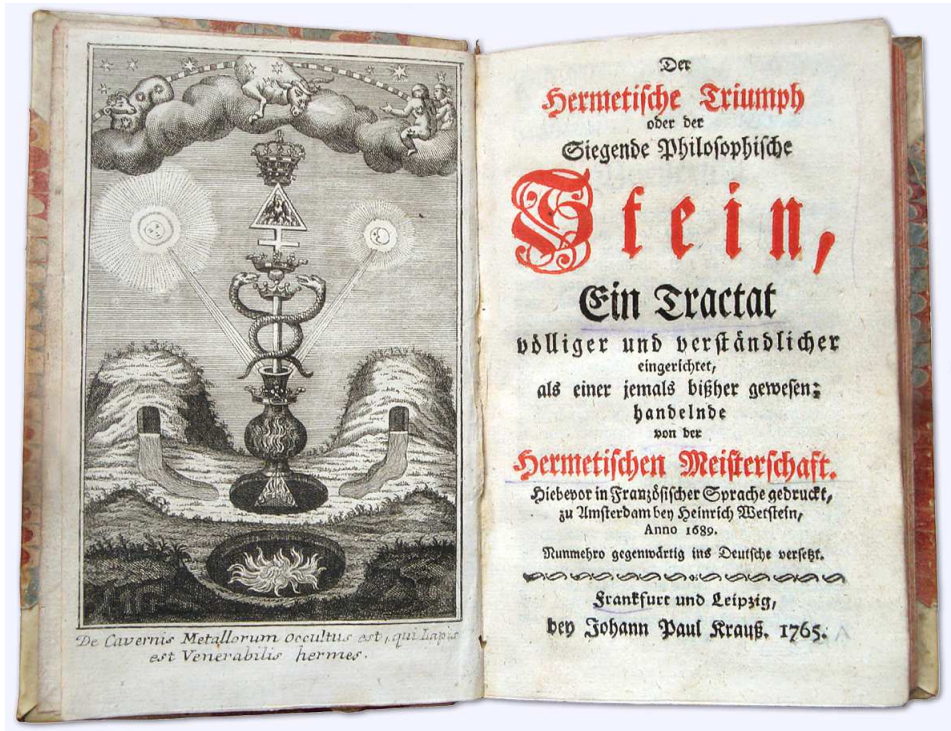 De Cavernis Metallorum occultus est, qui Lapis
est Venerabilis hermes.
Der
Hermetische Triumph
oder der
Siegende Philosophische
Stein,
Ein Tractat
völliger und verständlicher
eingerichtet,
als einer jemals bißher gewesen;
handelnde
von der
Hermetischen Meisterschaft.
Hiebevor in Französischer Sprache gedruckt,
zu Amsterdam bey Heinrich Wetstein,
Anno 1689.
Nunmehro gegenwärtig ins Deutsche versetzt.
Franckfurt und Leipzig,
bey Johann Paul Krauß. 1765.